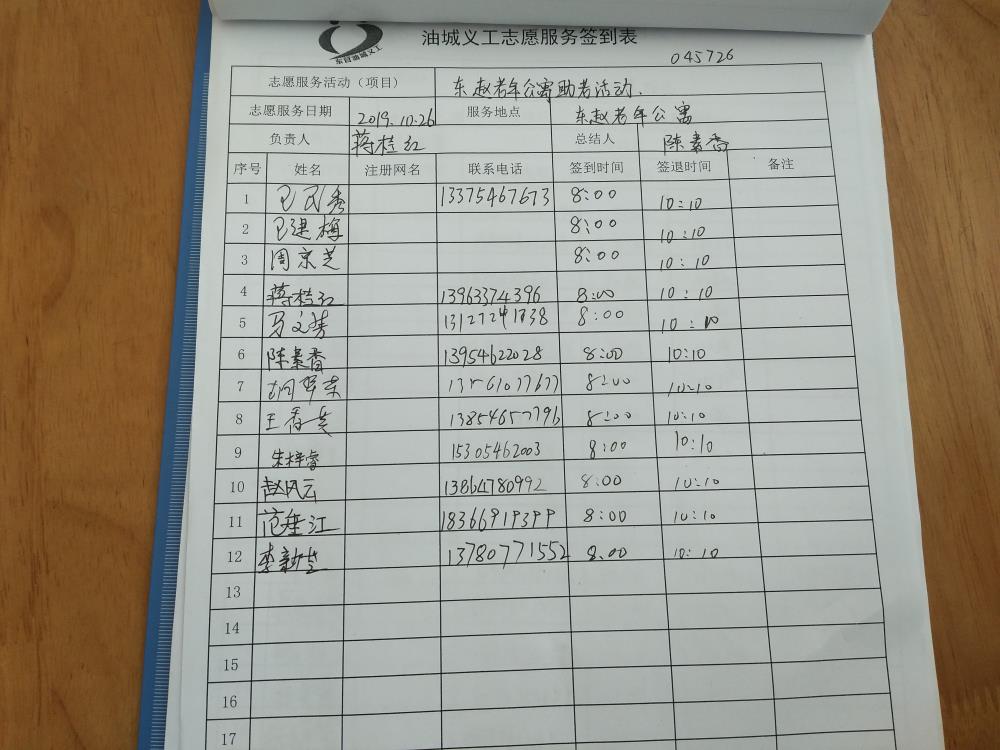 东营油城义工
油城义工志愿服务签到表
045726
志愿服务活动（项目） 东赵老年公寓助老活动.
志愿服务日期 2019.10.26 服务地点 东赵老年公寓
负责人 蒋桂红 总结人 陈素香
序号 姓名 注册网名 联系电话 签到时间 签退时间 备注
1 巴民秀 13375467673 8:00 10:10
2 巴建梅 8:00 10:10
3 周京芝 8:00 10:10
4 蒋桂红 13963374396 8:00 10:10
5 马文芳 8:00 10:10
6 陈素香 13954622028 8:00 10:10
7 胡翠东 8:00 10:10
8 王香芝 8:00 10:10
9 朱梓睿 15305462003 8:00 10:10
10 赵风云 13864780992 8:00 10:10
11 江 18366919399 8:00 10:10
12 李新兰 13780771552 8:00 10:10
13
14
15
16
17